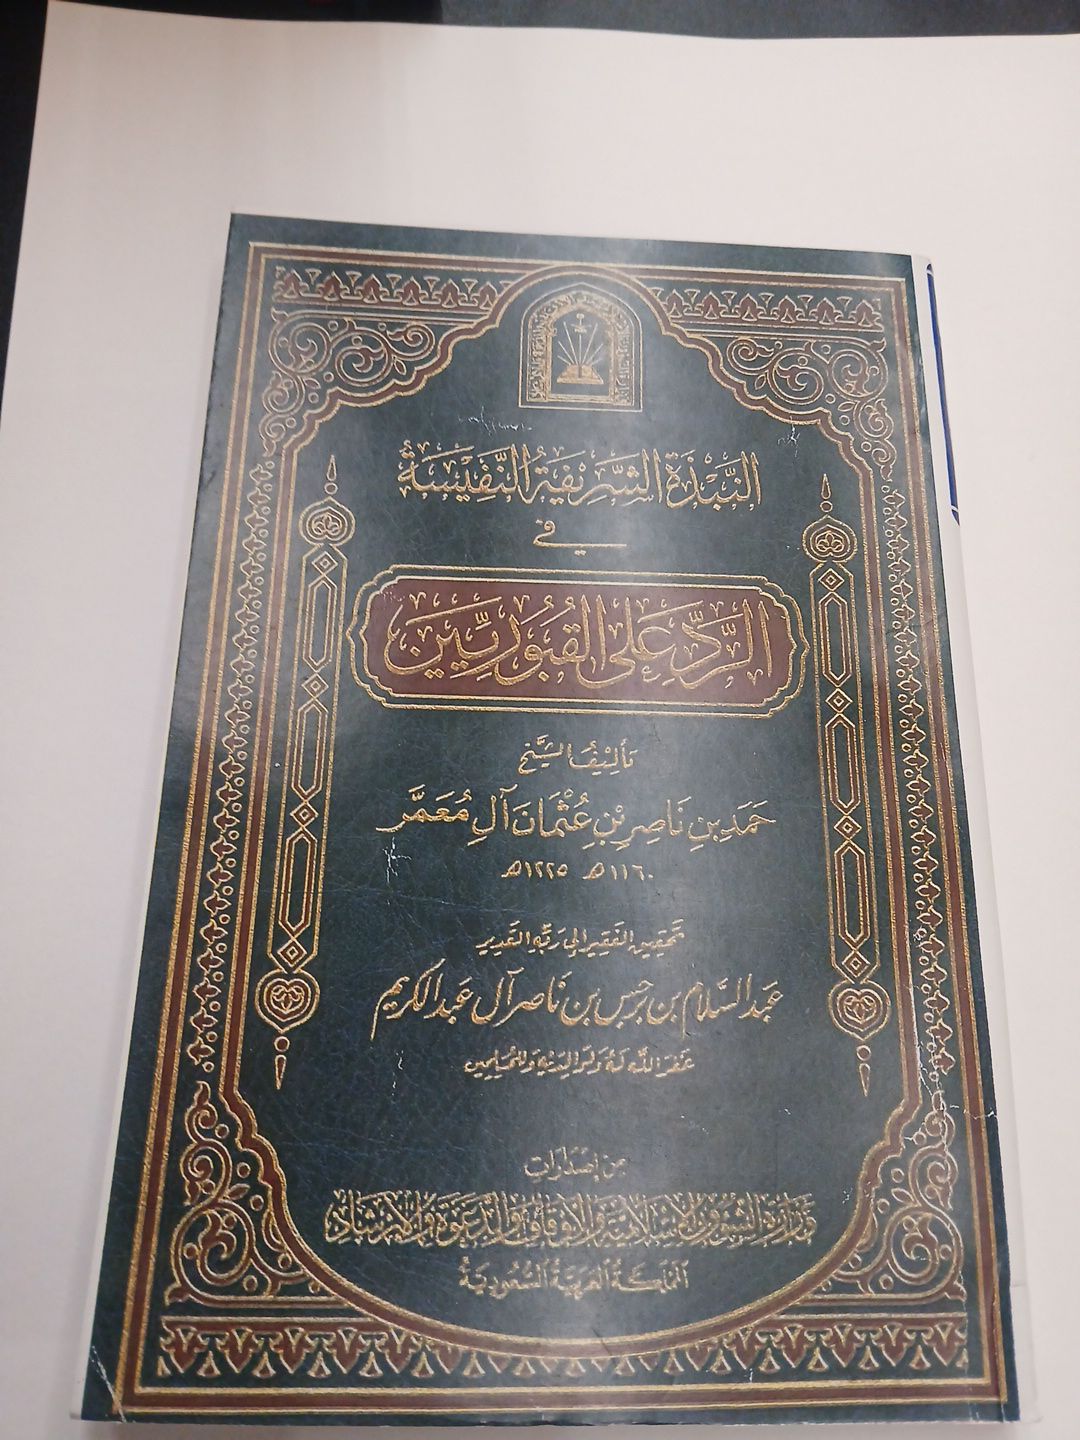 النَّبْذَةُ الشَّرِيفَةُ النَّفِيسَةُ
في
الرَّدِّ عَلَى القُبُورِيِّينَ
تأليفُ الشَّيْخِ
حَمَد بنِ نَاصِر بْنِ عُثْمَان آلِ مُعَمَّر
١١٦٠هـ ١٢٢٥هـ
تحقيق الفَقير إلى رَبِّهِ القَدير
عَبد السَّلام بن برجس بن نَاصر آل عَبد الكريم
غفَر اللَّه لهُ ولوَالديهِ وللمُسلِمين
مِن إصْدَارات
وزارة الشؤون الإسلامية والأوقاف والدعوة والإرشاد
المملكة العربية السعودية